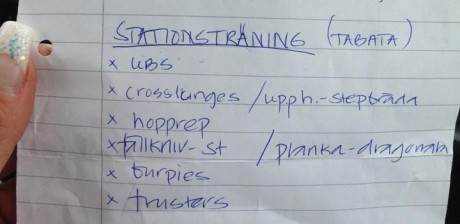 STATIONSTRÄNING (TABATA)
x UBS
x crosslunges /upph.-stepbräda
x hopprep
x fällkniv-st /planka-dragonala
x burpies
x trusters